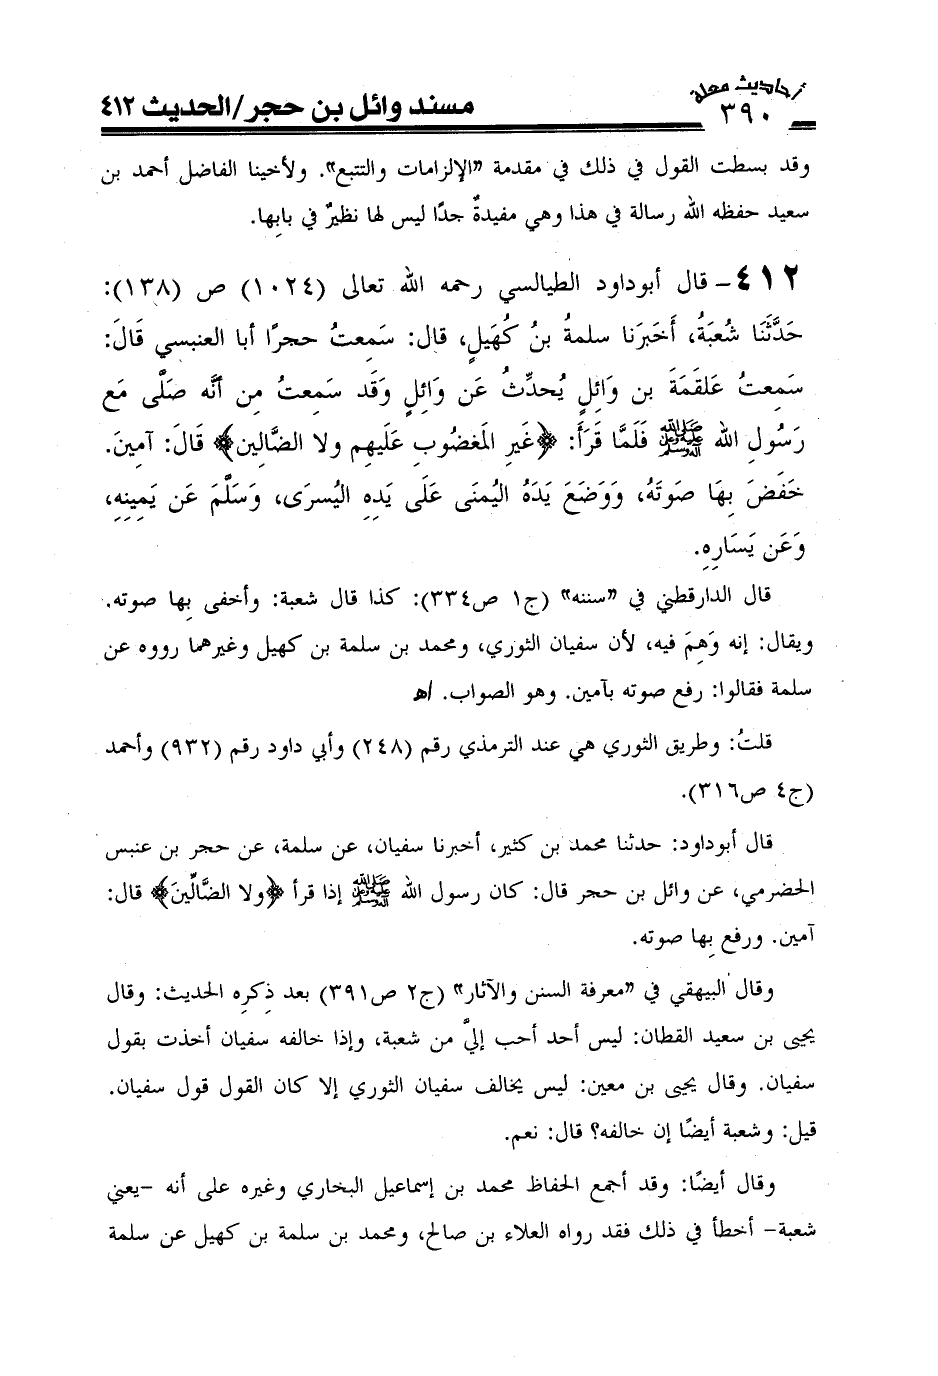 أحاديث معلة
٣٩٠
مسند وائل بن حجر/الحديث ٤١٢
وقد بسطت القول في ذلك في مقدمة «الإلزامات والتتبع». ولأخينا الفاضل أحمد بن
سعيد حفظه الله رسالة في هذا وهي مفيدةٌ جدًا ليس لها نظيرٌ في بابِها.
٤١٢- قال أبوداود الطيالسي رحمه الله تعالى (١٠٢٤) ص (١٣٨):
حَدَّثَنَا شُعبَةُ، أَخبَرَنا سلمةُ بنُ كُهَيلٍ، قال: سَمِعتُ حجرًا أبا العنبسي قَالَ:
سَمِعتُ عَلقَمَةَ بن وَائِلٍ يُحدِّثُ عَن وَائِلٍ وَقَد سَمِعتُ مِن أنَّه صَلَّى مَع
رَسُولِ الله ﷺ فَلَمَّا قَرَأَ: ﴿غَيرِ المَغضُوبِ عَلَيهِم ولا الضَّالين﴾ قَالَ: آمِينَ.
خَفَضَ بِهَا صَوتَهُ، وَوَضَعَ يَدَهُ اليُمنَى عَلَى يَدِهِ اليُسرَى، وَسَلَّمَ عَن يَمِينِهِ،
وَعَن يَسَارِهِ.
قال الدارقطني في «سننه» (ج١ ص٣٣٤): كذا قال شعبة: وأخفى بِها صوته.
ويقال: إنه وَهِمَ فيه، لأن سفيان الثوري، ومحمد بن سلمة بن كهيل وغيرهما رووه عن
سلمة فقالوا: رفع صوته بآمين. وهو الصواب. اه
قلتُ: وطريق الثوري هي عند الترمذي رقم (٢٤٨) وأبي داود رقم (٩٣٢) وأحمد
(ج٤ ص٣١٦).
قال أبوداود: حدثنا محمد بن كثير، أخبرنا سفيان، عن سلمة، عن حجر بن عنبس
الحضرمي، عن وائل بن حجر قال: كان رسول الله ﷺ إذا قرأ ﴿ولا الضَّالِّينَ﴾ قال:
آمين. ورفع بِها صوته.
وقال البيهقي في «معرفة السنن والآثار» (ج٢ ص٣٩١) بعد ذِكرِه الحديث: وقال
يحيى بن سعيد القطان: ليس أحد أحب إليَّ من شعبة، وإذا خالفه سفيان أخذت بقول
سفيان. وقال يحيى بن معين: ليس يخالف سفيان الثوري إلا كان القول قول سفيان.
قيل: وشعبة أيضًا إن خالفه؟ قال: نعم.
وقال أيضًا: وقد أجمع الحفاظ محمد بن إسماعيل البخاري وغيره على أنه -يعني
شعبة- أخطأ في ذلك فقد رواه العلاء بن صالح، ومحمد بن سلمة بن كهيل عن سلمة